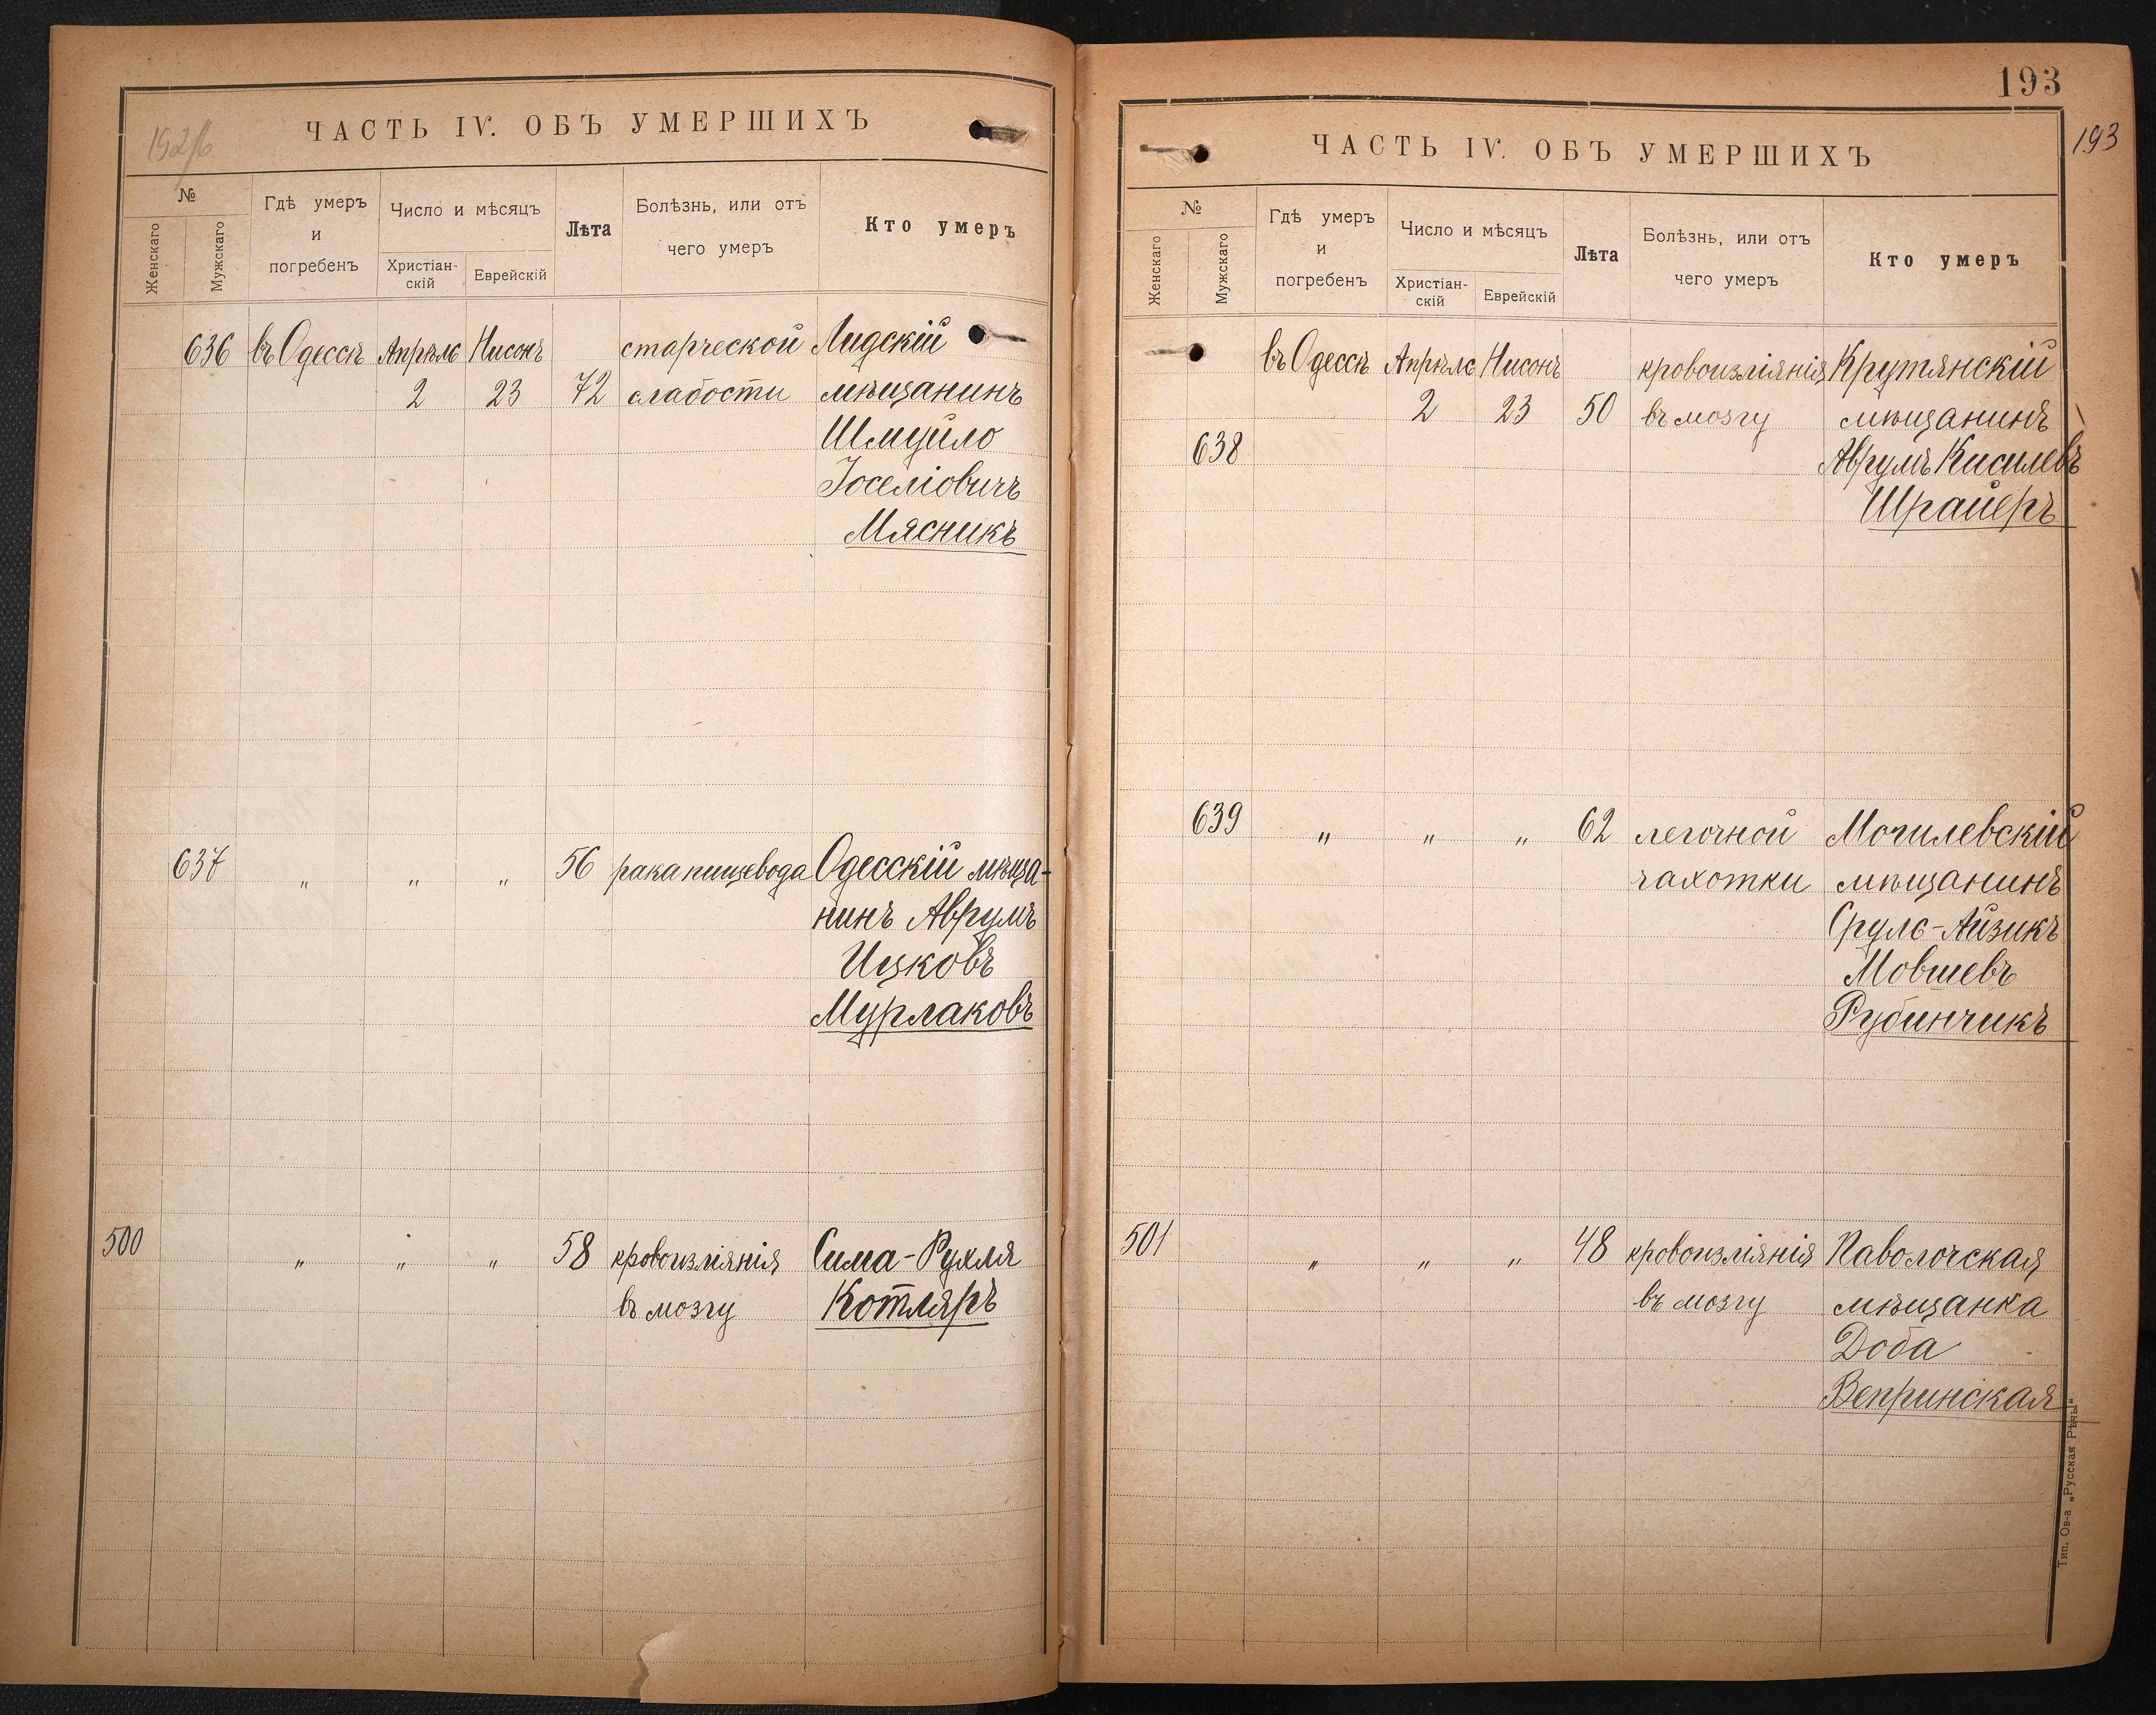 ЧАСТЬ IV. ОБЪ УМЕРШИХЪ
№
Женскаго
Мужскаго
Гдѣ умеръ
и
погребенъ
Число и мѣсяцъ
Христіан-
скій
Еврейскій
Лѣта
Болѣзнь, или отъ
чего умеръ
Кто умеръ
636 въ Одессѣ Апрѣль Нисонъ старческой Лидскій
2 23 72 слабости мѣщанинъ
Шмуйло
Іоселіовичъ
Мясникъ
637 " " " 56 рака пищевода Одесскій мѣща-
нинъ Аврумъ
Ицковъ
Мурлаковъ
500 " " " 58 кровоизліянія Сима-Рухля
въ мозгу Котляръ
193
193
ЧАСТЬ IV. ОБЪ УМЕРШИХЪ
№
Женскаго
Мужскаго
Гдѣ умеръ
и
погребенъ
Число и мѣсяцъ
Христіан-
скій
Еврейскій
Лѣта
Болѣзнь, или отъ
чего умеръ
Кто умеръ
въ Одессѣ Апрѣль Нисонъ кровоизліянія Крутянскій
2 23 50 въ мозгу мѣщанинъ
638 Аврумъ Кисилевъ
Шрайеръ
639 " " " 62 легочной Могилевскій
чахотки мѣщанинъ
Сруль-Айзикъ
Мовшевъ
Рубинчикъ
501 " " " 48 кровоизліянія Паволочская
въ мозгу мѣщанка
Доба
Вепринская
Тип. Ов-а „Русская Рѣчь"